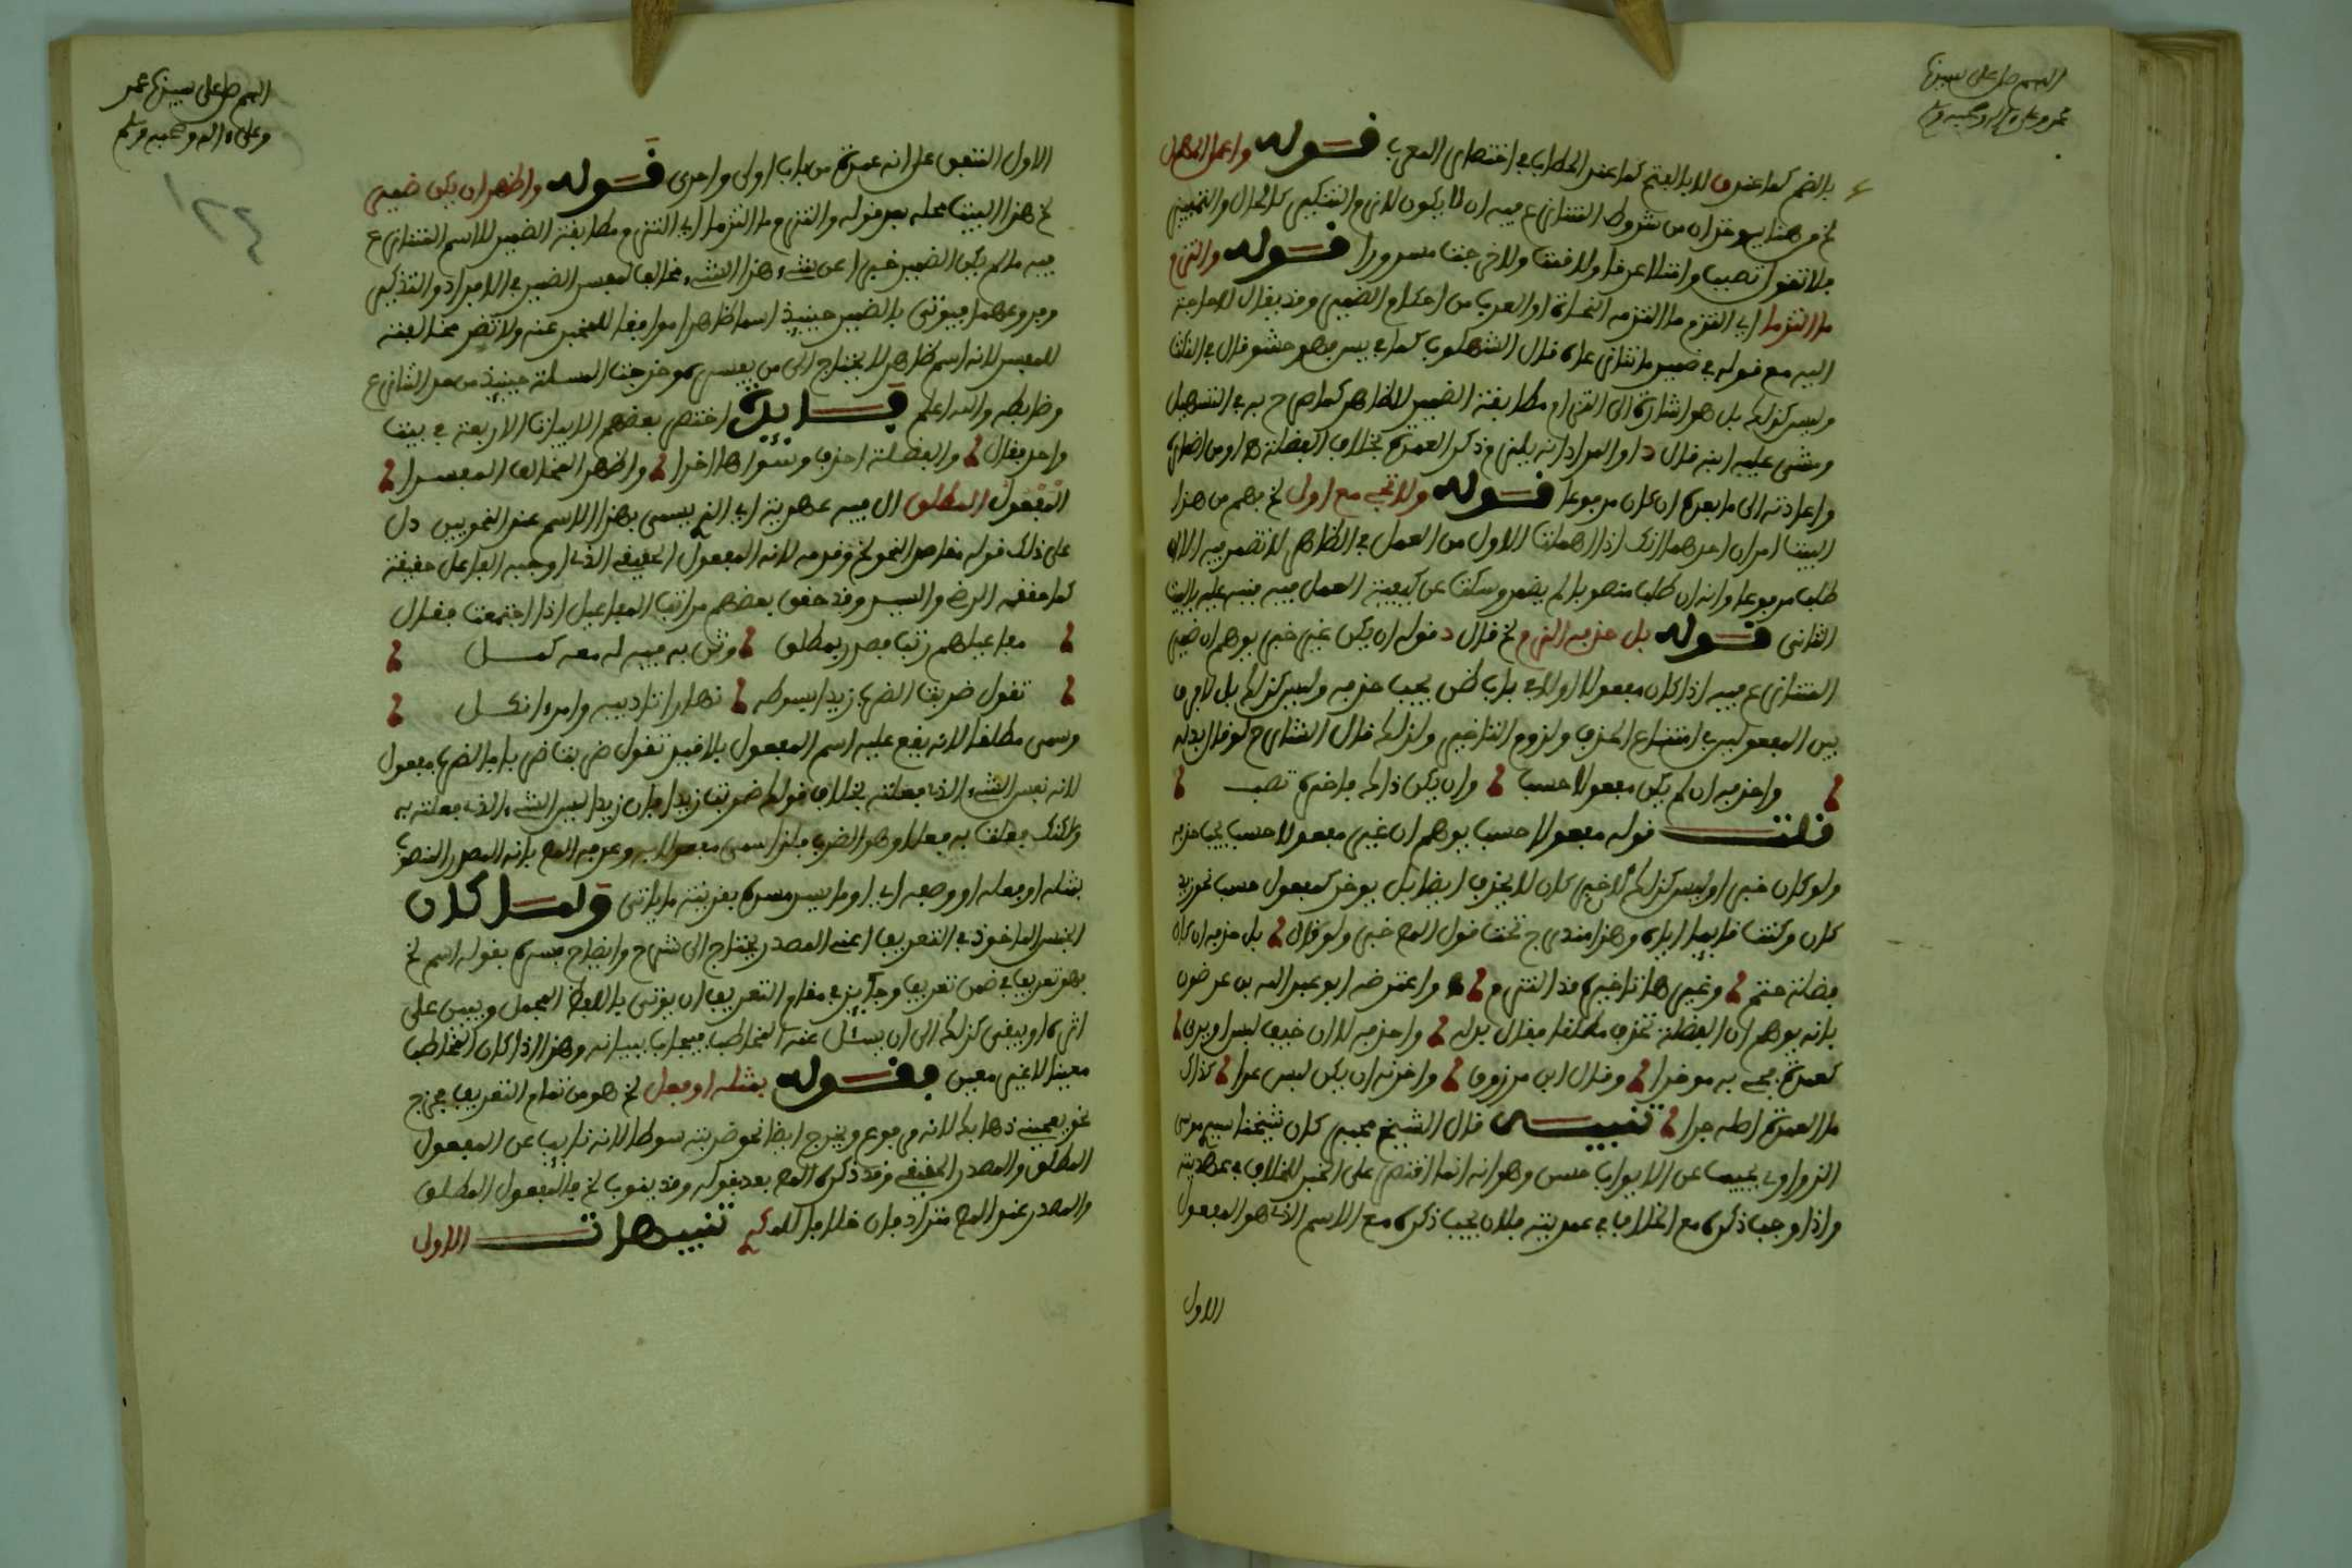 اللهم صل على سيدنا
محمد وعلى آله وصحبه وسلم
بالضم كما عند ق لا بالفتح كما عند الحطاب في اختصار المعرب قوله واعمل المهمل
لخ من هنا يوخذ ان من شروط المتنازع فيه ان لا يكون لازم التنكير كالحال والتمييز
فلا تقول تصببا وامتلا عرقا ولا قمت ولا خرجت مسرورا قوله والتزم
ما التزما اي التزم ما التزمه النحاة او العرب من احكام الضمير وقد يقال لا حاجة
اليه مع قوله في ضمير ما تنازعاه قال الشهاوي كما في يس فهو حشو قال في النكت
وليس كذلك بل هو اشارة الى التزام مطابقة الضمير للظاهر كما صرح به في التسهيل
ومشى عليه ابنه قال د او المراد انه يلتزم ذكر العمدة بخلاف الفضلة اومن اضمار
واعادته الى ما بعده ان كان مرفوعا قوله ولا تجئ مع اول لخ فهم من هذا
البيت امران احدهما انك اذا اهملت الاول من العمل في الظاهر لا تضمر فيه الا ان
طلب مرفوعا وانه ان طلب منصوبا لم يضمر وسكت عن كيفية العمل فيه فنبه عليه بالبيت
الثاني قوله بل حذفه الزم لخ قال د قوله ان يكن غير خبر يوهم ان ضمير
المتنازع فيه اذا كان مفعولا اولا في باب ظن يجب حذفه وليس كذلك بل لا فرق
بين المفعولين في امتناع الحذف ولزوم التاخير ولذلك قال الشارح لو قال بدله
واحذفه ان لم يكن مفعولا حسب وان يكن ذاك فاخره تصب
قلت قوله مفعولا حسب يوهم ان غير مفعولا حسب يجب حذفه
ولو كان خبرا وليس كذلك لان خبر كان لا يحذف ايضا بل يوخر كمفعول حسب نحو زيد
كان وكنت قائما اياه وهذا مندرج تحت قول المص خبر ولو قال بل حذفه ان كان
فضلة حتم وغيرها تاخيره قد التزم واعترضه ابو عبد الله بن عرضون
بانه يوهم ان الفضلة تحذف مطلقا فقال بدله واحذفه لا ان خيف لبس او يرى
كعمدة فجئ به موخرا وقال ابن مرزوق واخرنه ان يكن لبس عرا كذاك
ما العمدة اطه جرا تنبيه قال الشيخ محمد كان شيخنا سيدي موسى
الزواوي يجيب عن الابواب حسن وهو انه انما اقتصر على الخبر للخلاف في عمديته
واذا وجب ذكره مع الخلاف في عمديته فلان يجب ذكره مع الاسم الذي هو المفعول
الاول
اللهم صل على سيدنا محمد
وعلى ءاله وصحبه وسلم
الاول المتفق على انه عمدة من باب اولى واحرى قوله واظهر ان يكن ضمير
لخ هذا البيت محله بعد قوله والتزم ما التزما اي التزم مطابقة الضمير للاسم المتنازع
فيه ما لم يكن الضمير خبرا عن شيء هذا الشيء مخالف لمفسر الضمير في الافراد والتذكير
وفروعهما فيوتى بالضمير حينئذ اسما ظاهرا موافقا للمخبر عنه ولا تضر مخالفته
للمفسر لانه اسم ظاهر لا يحتاج الى من يفسره وخرجت المسالة حينئذ من حد التنازع
وضابطه والله اعلم فائدة اختصر بعضهم الابيات الاربعة في بيت
واحد فقال والفضلة احذف وسواها اخرا واظهر المخالف المفسرا
المفعول المطلق ال فيه عهدية اي الذي يسمى بهذا الاسم عند النحويين دل
على ذلك قوله مقاصد النحو لخ وقدمه لانه المفعول الحقيقي الذي اوجده الفاعل حقيقة
كما حققه الرضي والسيد وقد حقق بعضهم مراتب المفاعيل اذا اجتمعت فقال
مفاعيلهم رتب فصدر بمطلق وثن به فيه له معه كمل
تقول ضربت الضرب زيدا بسوطه نهارا تاديبه وامرءا نكل
وسمي مطلقا لانه يقع عليه اسم المفعول بلا قيد تقول ضربت ضربا فالضرب مفعول
لانه نفس الشيء الذي فعلته بخلاف قولك ضربت زيدا فان زيدا ليس الشيء الذي فعلته به
ولكنك فعلت به فعلا وهو الضرب فلذا سمي مفعولا به وعرفه المص بانه المصدر المنصوب
بمثله او فعله او وصفه اي او ما يفسره بقرينة ما ياتي ولما كان
الجنس الماخوذ في التعريف اعني المصدر يحتاج الى شرح وايضاح فسره بقوله اسم لخ
فهو تعريف في ضمن تعريف وجائز في مقام التعريف ان يوتى باللفظ المجمل ويبين على
اثره او يبقى كذلك الى ان يسئل عنه المخاطب فيجاب ببيانه وهذا اذا كان المخاطب
معينا لا غير معين فقوله بمثله او فعل لخ هو من تمام التعريف مخرج
نحو يعجبني ذهابك لانه مرفوع ويخرج ايضا نحو ضربته سوطا لانه نائب عن المفعول
المطلق والمصدر الحقيقي وقد ذكره المص بعد بقوله وقد ينوب لخ فالمفعول المطلق
والمصدر عند المص مترادفان خلافا للمكي تنبيهات الاول